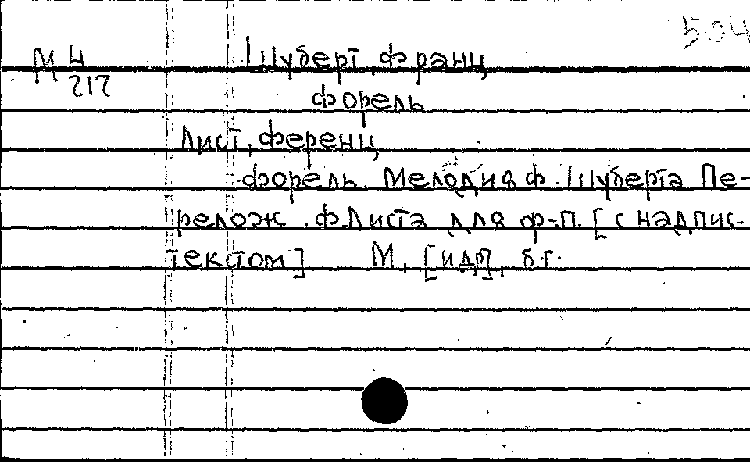 504
М 4 Шуберт, Франц
217
Форель
Лист, Ференц
Форель. Мелодия Ф. Шуберта Пе-
релож. Ф. Листа для ф-п. [с надпис.
текстом] М., [ ], б.г.